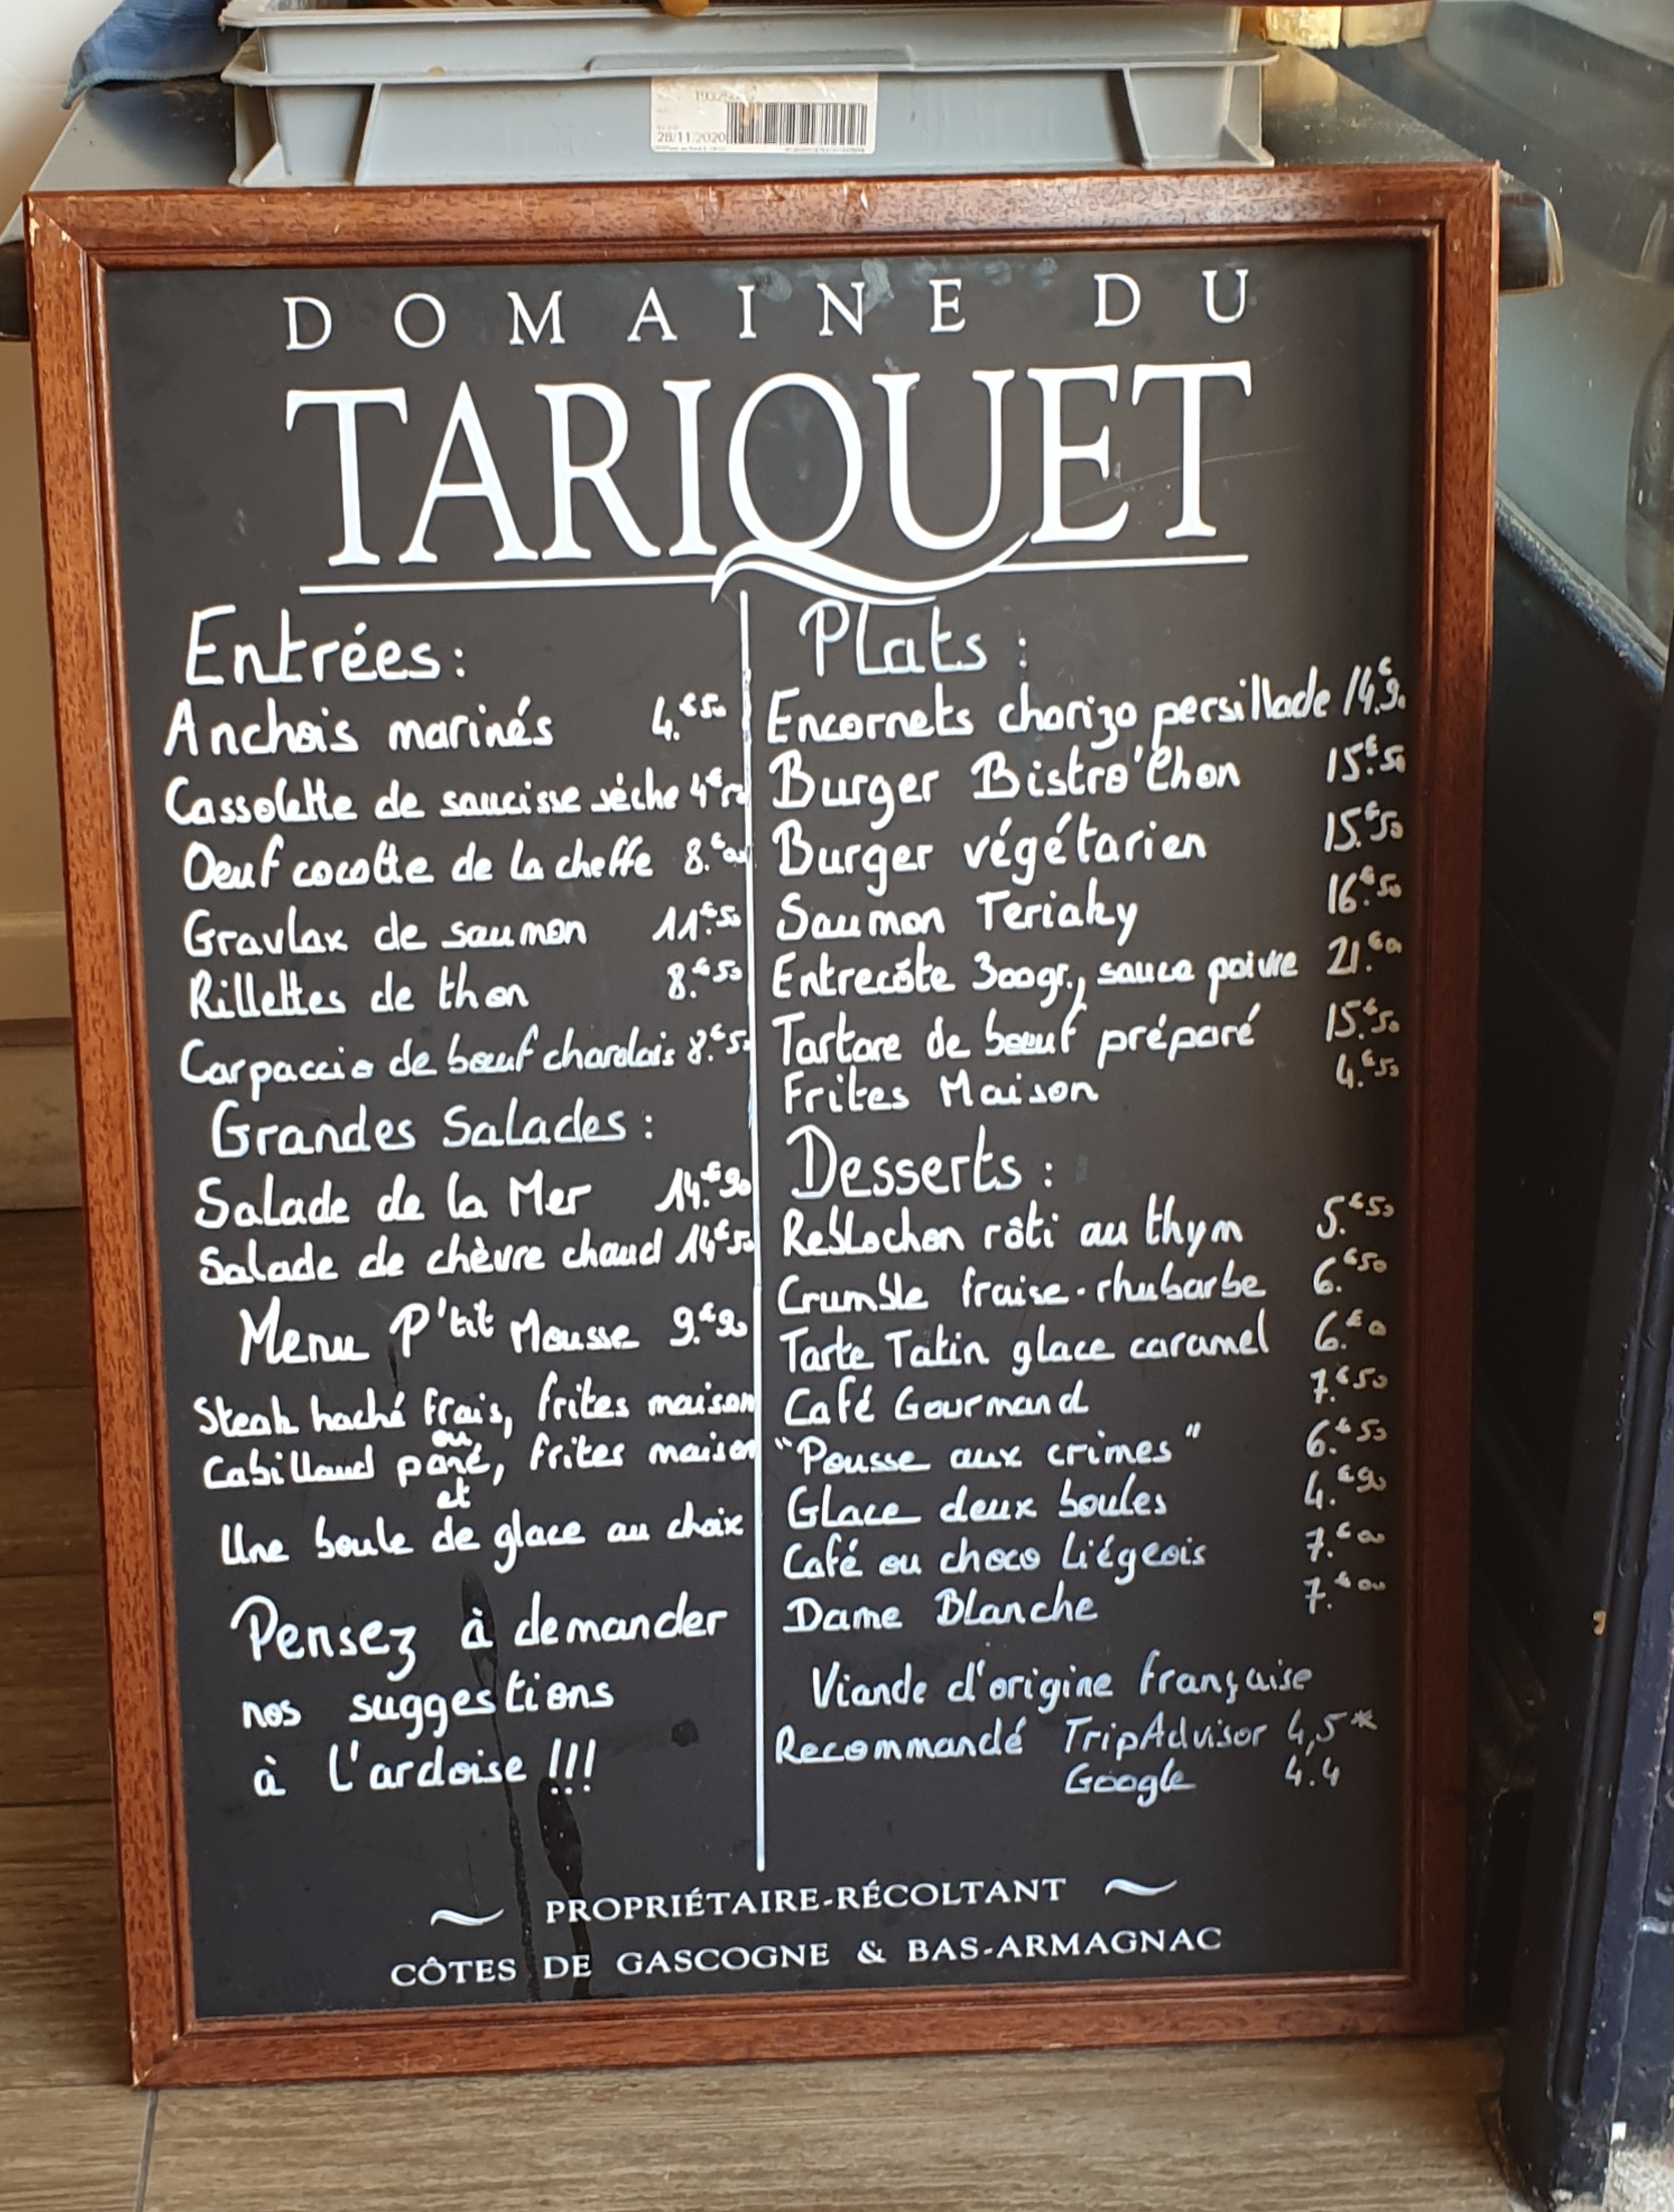 28/11/2020
DOMAINE DU
TARIQUET
Entrées:
Anchois marinés 4.€50
Cassolette de saucisse sèche 4€50
Oeuf cocotte de la cheffe 8.€00
Gravlax de saumon 11.€50
Rillettes de thon 8.€50
Carpaccio de bœuf charolais 8.€50
Grandes Salades:
Salade de la Mer 14.€90
Salade de chèvre chaud 14€50
Menu P'tit Mousse 9.€90
Steak haché frais, frites maison
ou
Cabillaud pané, frites maison
et
Une boule de glace au choix
Pensez à demander
nos suggestions
à l'ardoise !!!
Plats :
Encornets chorizo persillade 14.€90
Burger Bistro'Chon 15.€50
Burger végétarien 15.€50
Saumon Teriaky 16.€50
Entrecôte 300gr., sauce poivre 21.€00
Tartare de boeuf préparé 15.€50
Frites Maison 4.€50
Desserts :
Reblochon rôti au thym 5.€50
Crumble fraise-rhubarbe 6.€50
Tarte Tatin glace caramel 6.€00
Café Gourmand 7.€50
"Pousse aux crimes" 6.€50
Glace deux boules 4.€90
Café ou choco Liégeois 7.€00
Dame Blanche 7.€00
Viande d'origine française
Recommandé TripAdvisor 4,5*
Google 4.4
PROPRIÉTAIRE-RÉCOLTANT
CÔTES DE GASCOGNE & BAS-ARMAGNAC